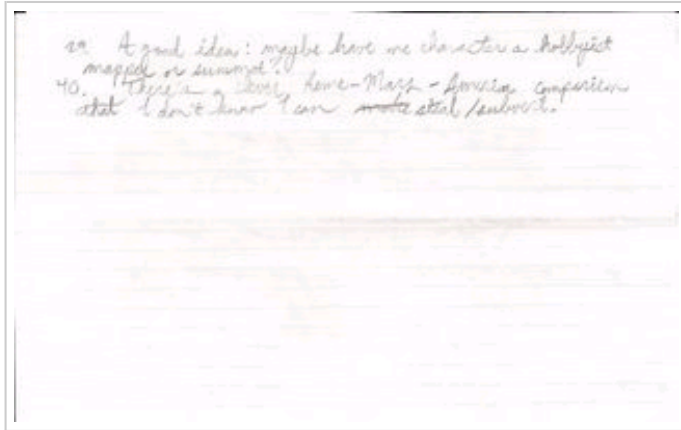 29. A good idea: maybe have one character a hobbyist
mapper or summat.
40. There's a clever Rome-Mars-America comparison
that I don't know I can steal/subvert.